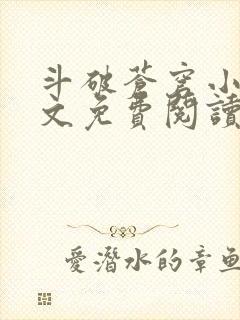 斗破蒼穹小
文免費閱讀
愛潛水的章魚